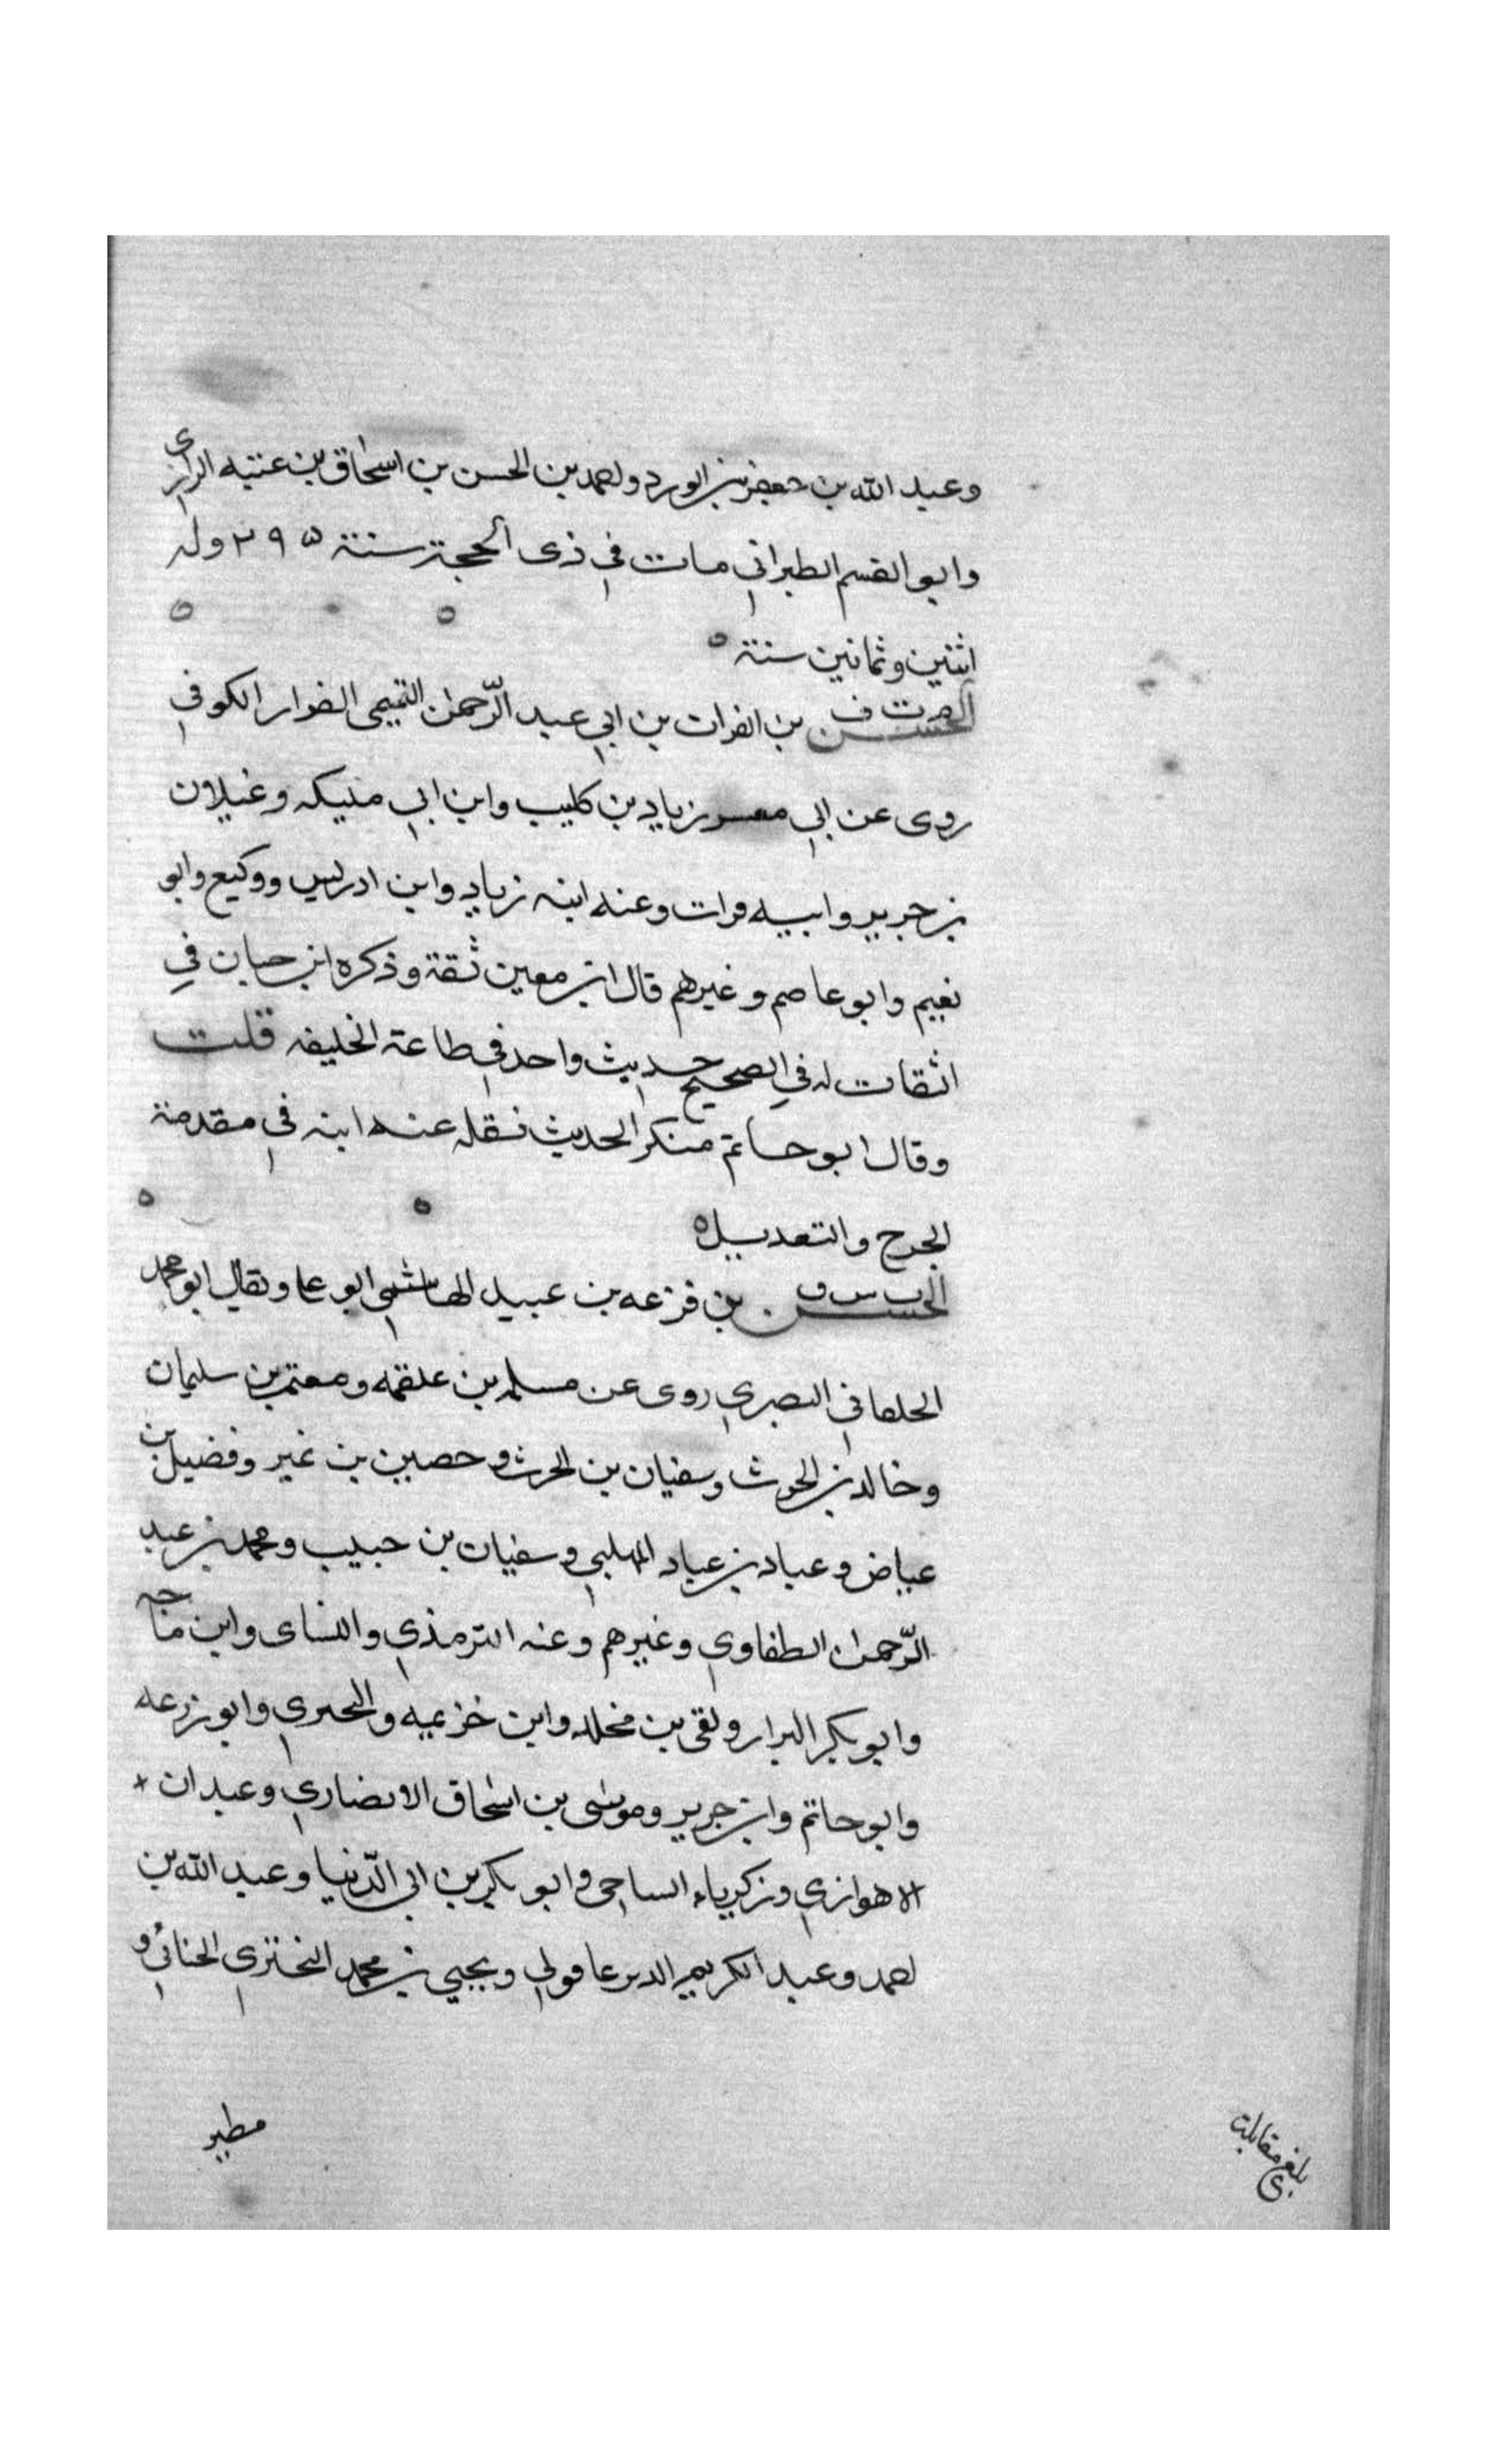 وعبد الله بن جعفر بن الورد واحمد بن الحسن بن اسحاق بن عتبه الرازى
وابو القسم الطبرانى مات في ذى الحجة سنة ٢٩٥ وله
اثنين وثمانين سنة ه
الحسن م ت ف بن الفرات بن ابي عبد الرّحمن التميمى الفرار الكوفي
روى عن ابي معسر زياد بن كليب وابن ابي مليكه وغيلان
بن جرير وابيه فرات وعنه ابنه زياد وابن ادريس ووكيع وابو
نعيم وابو عاصم وغيرهم قال ابن معين ثقة وذكره ابن حبان في
الثقات له في الصحيح حديث واحد في طاعة الخليفه قلت
وقال ابو حاتم منكر الحديث نقله عنه ابنه في مقدمة
الجرح والتعديل ه
الحسن ت س ق بن قزعه بن عبيد الهاشمى ابو على ويقال ابو محمد
الحلقانى البصري روى عن مسلمه بن علقمه ومعتمر بن سليمان
وخالد بن الحرث وسفيان بن الحرث وحصين بن نمير وفضيل بن
عياض وعباد بن عباد المهلبي وسفيان بن حبيب ومحمد بن عبد
الرّحمن الطفاوي وغيرهم وعنه الترمذي والنساى وابن ماجه
وابو بكر البزار وبقى بن مخلد وابن خزيمه والبحيرى وابو زرعه
وابو حاتم وابن جرير وموسى بن اسحاق الانصاري وعبدان
الاهوازي وزكرياء الساجى وابو بكر بن ابى الدّنيا وعبد الله بن
احمد وعبد الكريم الديرعاقولي ويحيي بن محمد البخترى الحنائي و
مطير
بلغ مقابلة